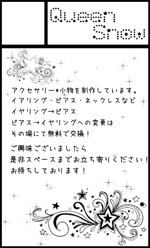 Queen
Snow
アクセサリー*小物を制作しています。
イアリング・ピアス・ネックレスなど
イヤリング→ピアス
ピアス→イヤリングへの変更は
その場にて無料で交換！
ご興味ございましたら
是非スペースまでお立ち寄りください！
お待ちしております！